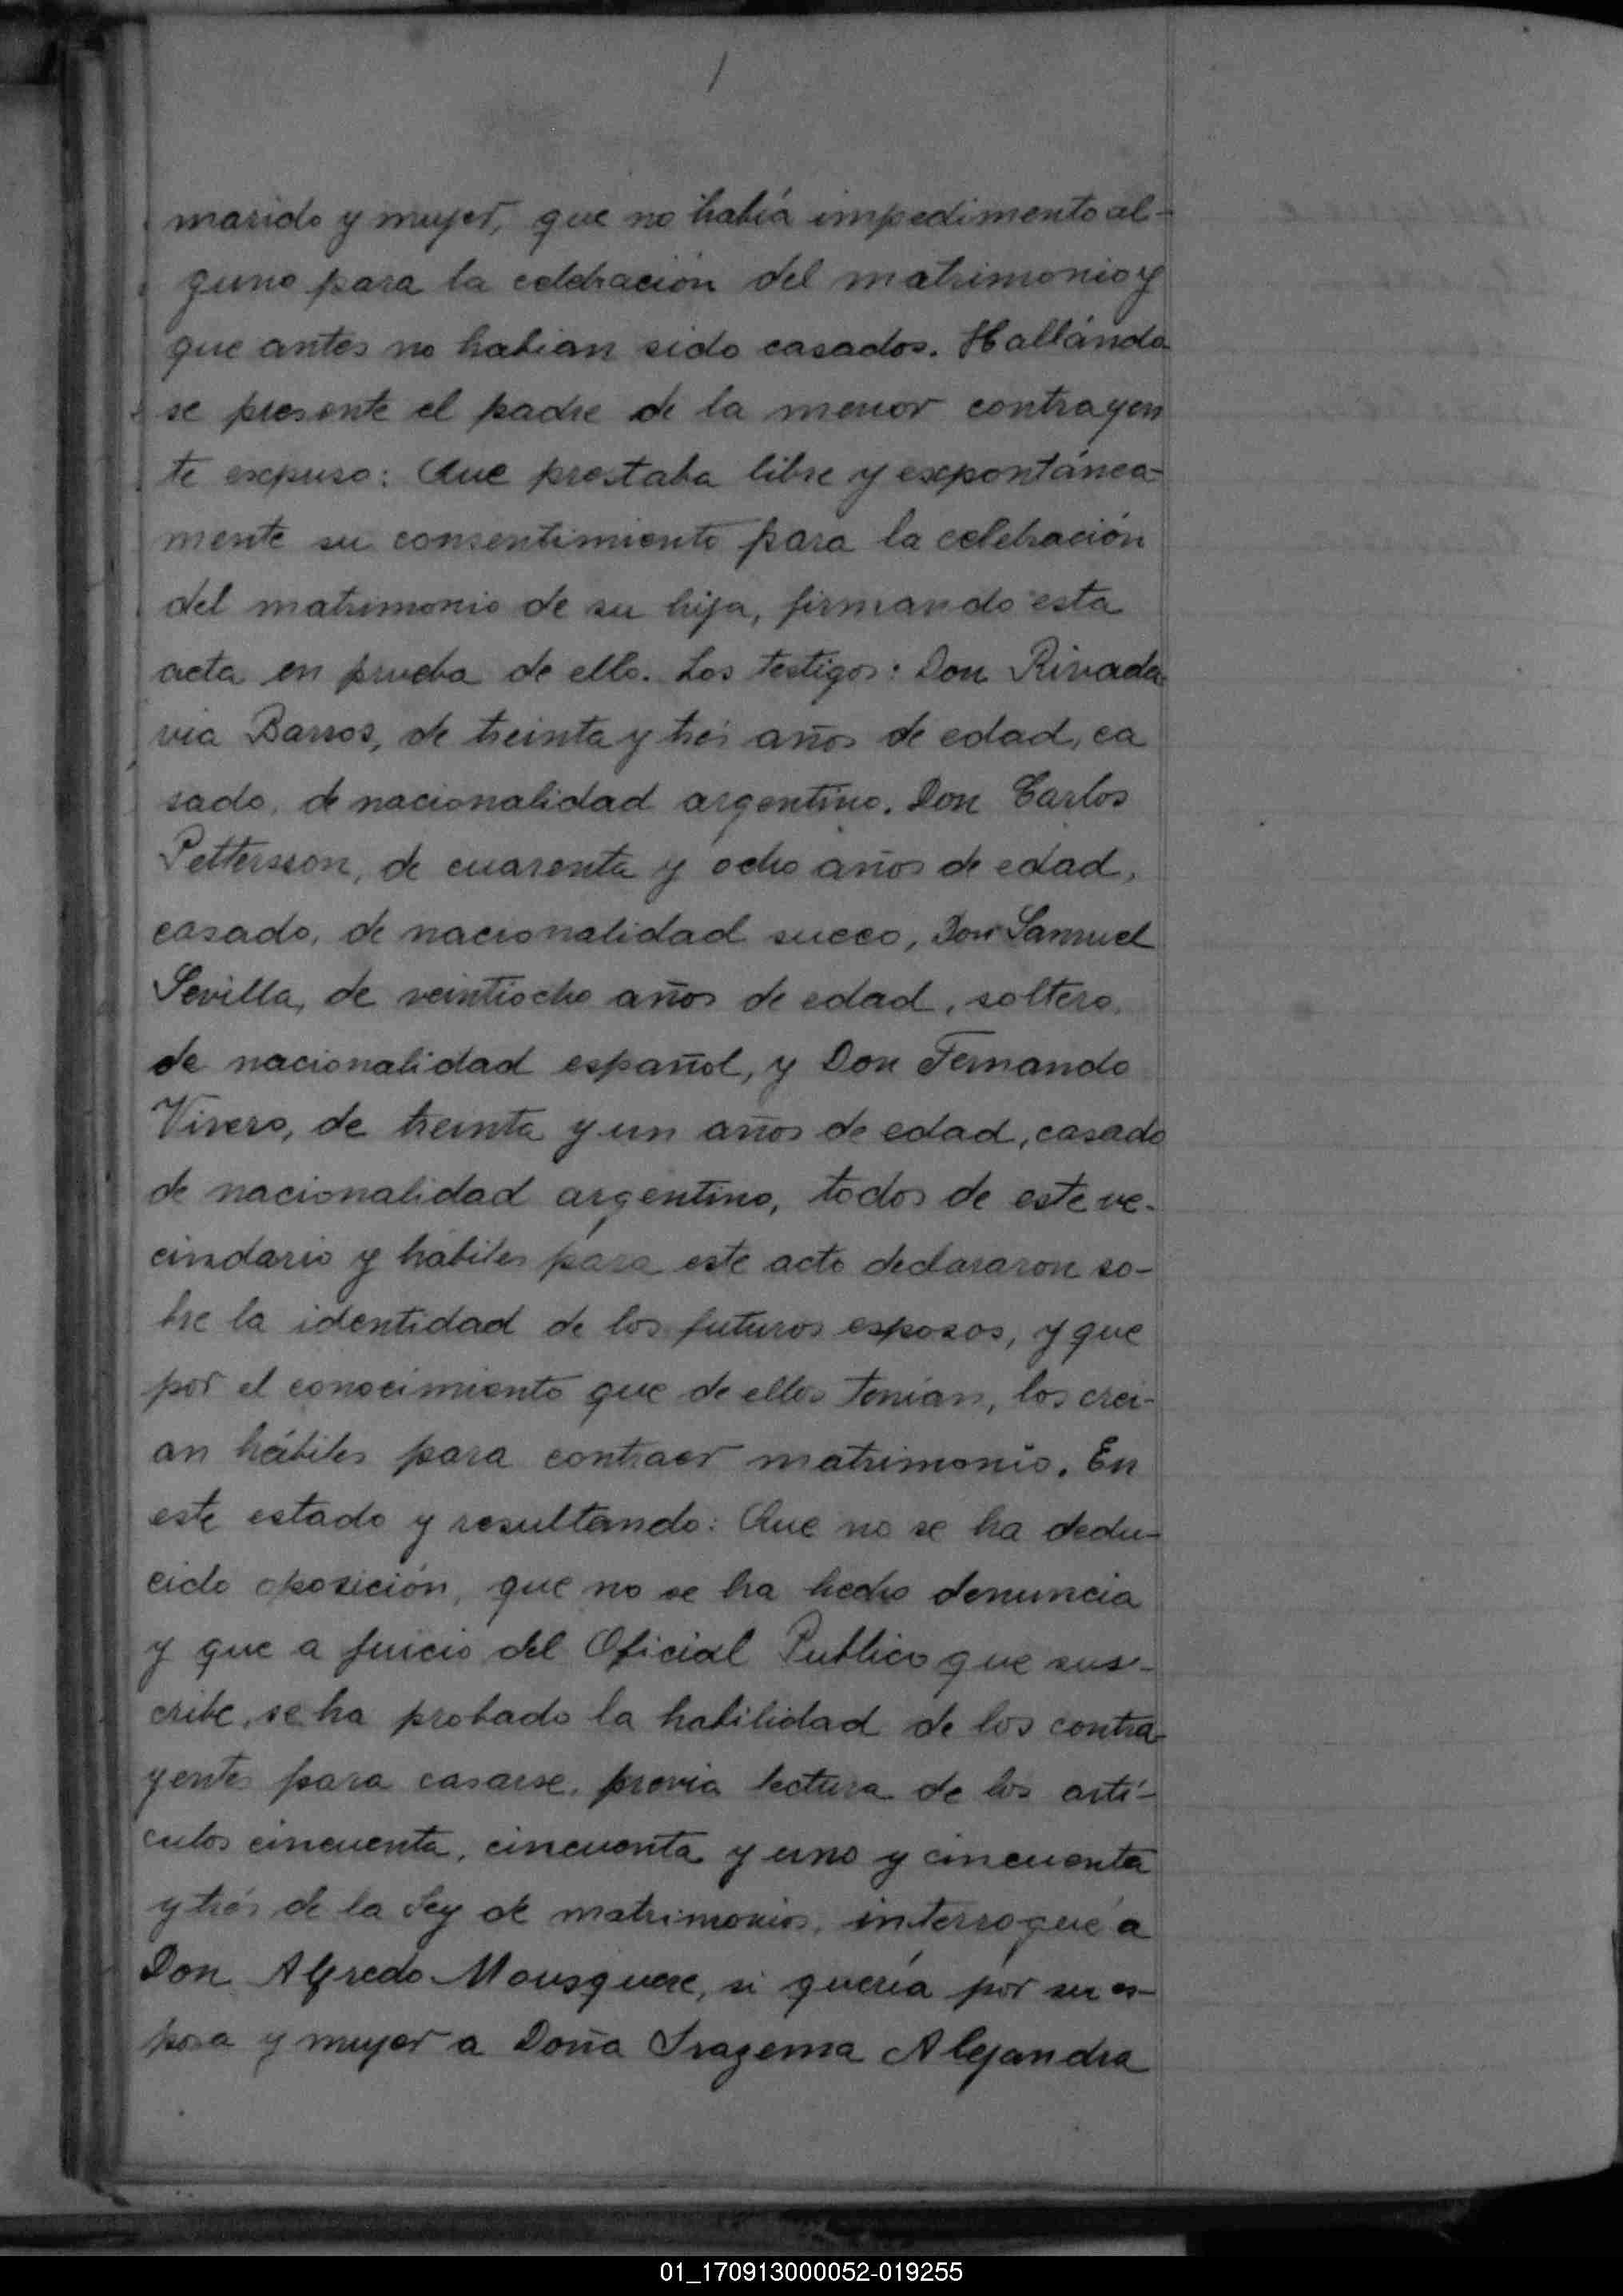 marido y mujer, que no había impedimento al-
guno para la celebración del matrimonio y
que antes no habian sido casados. Hallándo
se presente el padre de la menor contrayen
te expuso: Que prestaba libre y expontánea-
mente su consentimiento para la celebración
del matrimonio de su hija, firmando esta
acta en prueba de ello. Los testigos: Don Rivada-
via Barros, de treinta y trés años de edad, ca
sado, de nacionalidad argentino. Don Carlos
Pettersson, de cuarenta y ocho años de edad,
casado, de nacionalidad sueco, Don Samuel
Sevilla, de veintiocho años de edad, soltero,
de nacionalidad español, y Don Fernando
Vivero, de treinta y un años de edad, casado
de nacionalidad argentino, todos de este ve-
cindario y hábiles para este acto declararon so-
bre la identidad de los futuros esposos, y que
por el conocimiento que de ellos tenían, los creí-
an hábiles para contraer matrimonio. En
este estado y resultando: Que no se ha dedu-
cido oposición, que no se ha hecho denuncia
y que a juicio del Oficial Publico que sus-
cribe, se ha probado la habilidad de los contra-
yentes para casarse, previa lectura de los artí-
culos cincuenta, cincuenta y uno y cincuenta
y trés de la Ley de matrimonios, interrogué a
Don Alfredo Mousquere, si quería por su es-
posa y mujer a Doña Iragema Alejandra
01_170913000052-019255